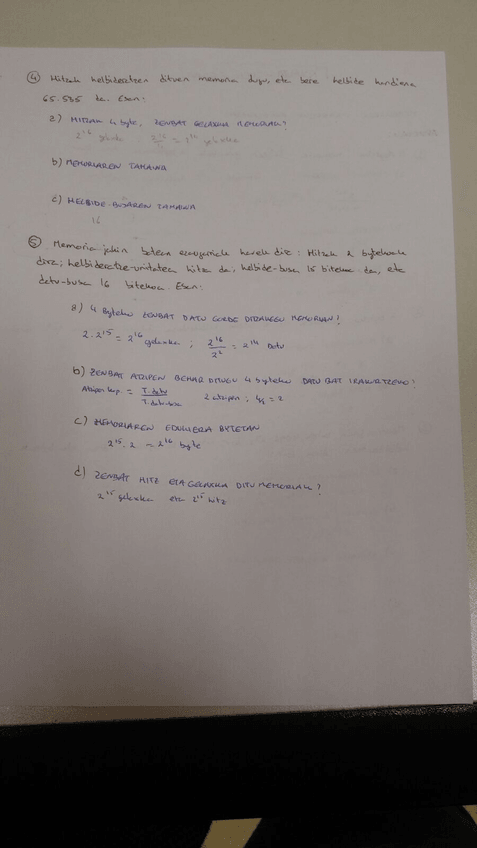 ④ Hitzak helbideratzen dituen memoria dugu, eta bere helbide handiena
65.535 da. Esan:
a) HITZAK 4 byte, ZENBAT GELAXKA MEMORIAK?
2^16 gelaxka 2^16 = 2^14 gelaxka
b) MEMORIAREN TAMAINA
c) HELBIDE-BUSAREN TAMAINA
16
⑤ Memoria jakin batean ezaugarriak hauek dira: Hitzak 2 bytekoak
dira; helbideratze-unitatea hitza da; helbide-busa 15 bitekoa da, eta
datu-busa 16 bitekoa. Esan:
a) 4 Byteko ZENBAT DATU GORDE DITZAKEGU MEMORIAN?
2·2^15 = 2^16 gelaxka ; 2^16/2^2 = 2^14 DATU
b) ZENBAT ATZIPEN BEHAR DITUGU 4 byteko DATU BAT IRAKURTZEKO?
Atzipen kop. = T.datu/T.datu-busa 2 atzipen ; 4/2 = 2
c) MEMORIAREN EDUKIERA BYTETAN
2^15 · 2 = 2^16 byte
d) ZENBAT HITZ ETA GELAXKA DITU MEMORIAK?
2^15 gelaxka eta 2^15 hitz